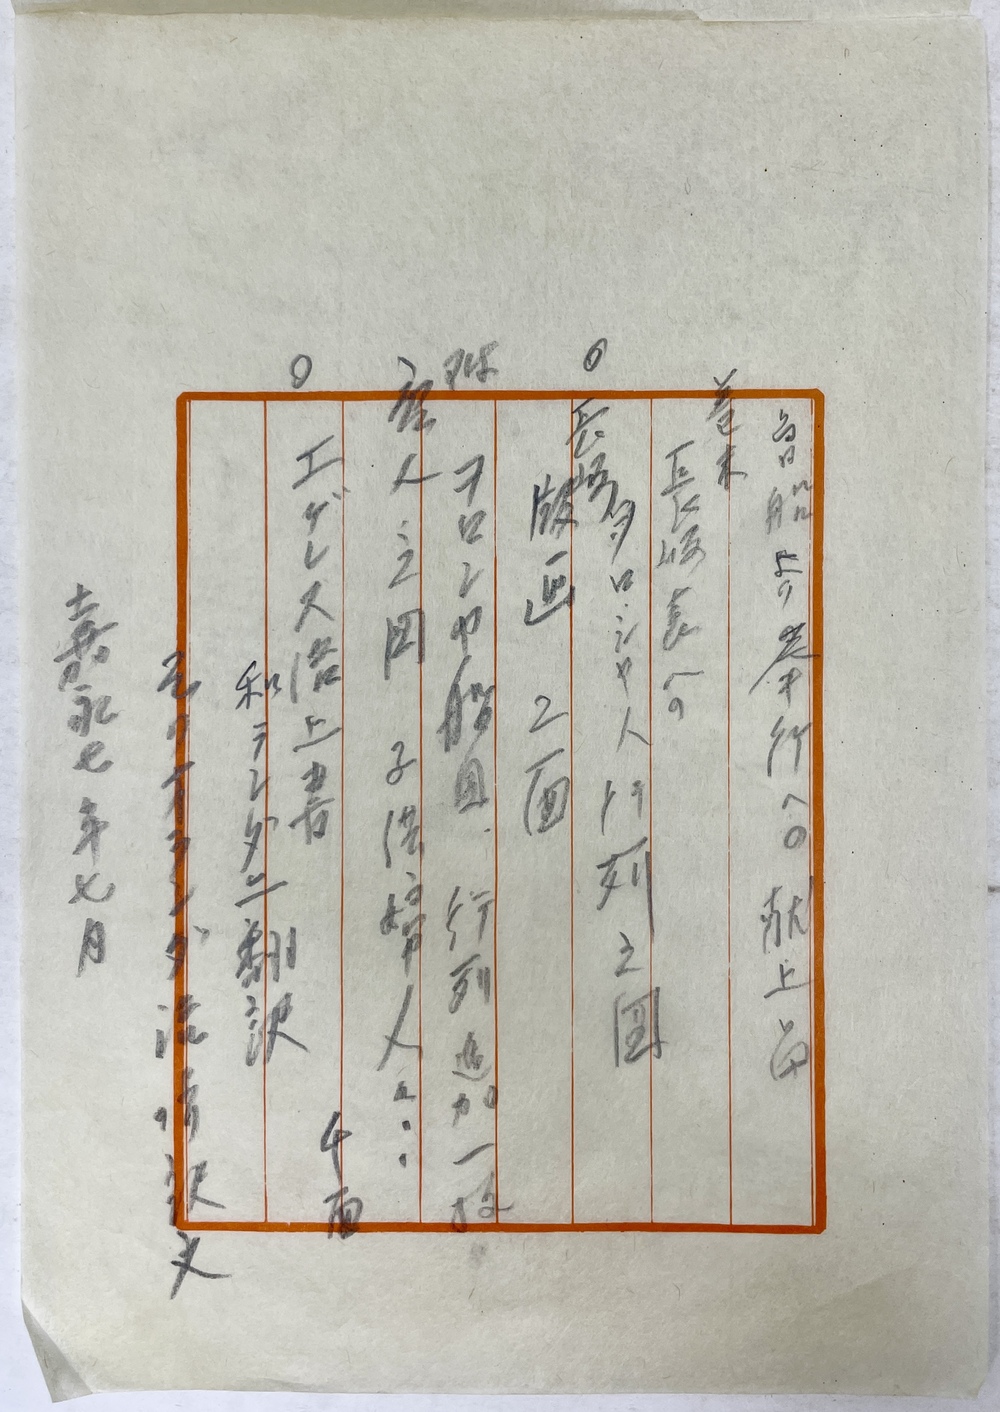 魯船より奉行への献上品
巻末
長崎表への
○
長崎ヲロシヤ人行列之図
版画 2面
ヲロシヤ船図 行列 追加一枚
唐人之図 子供 婦人
4面
○
エゲレス 上書
和ランダニ翻訳
ヲランダ 訳文
嘉永七年七月